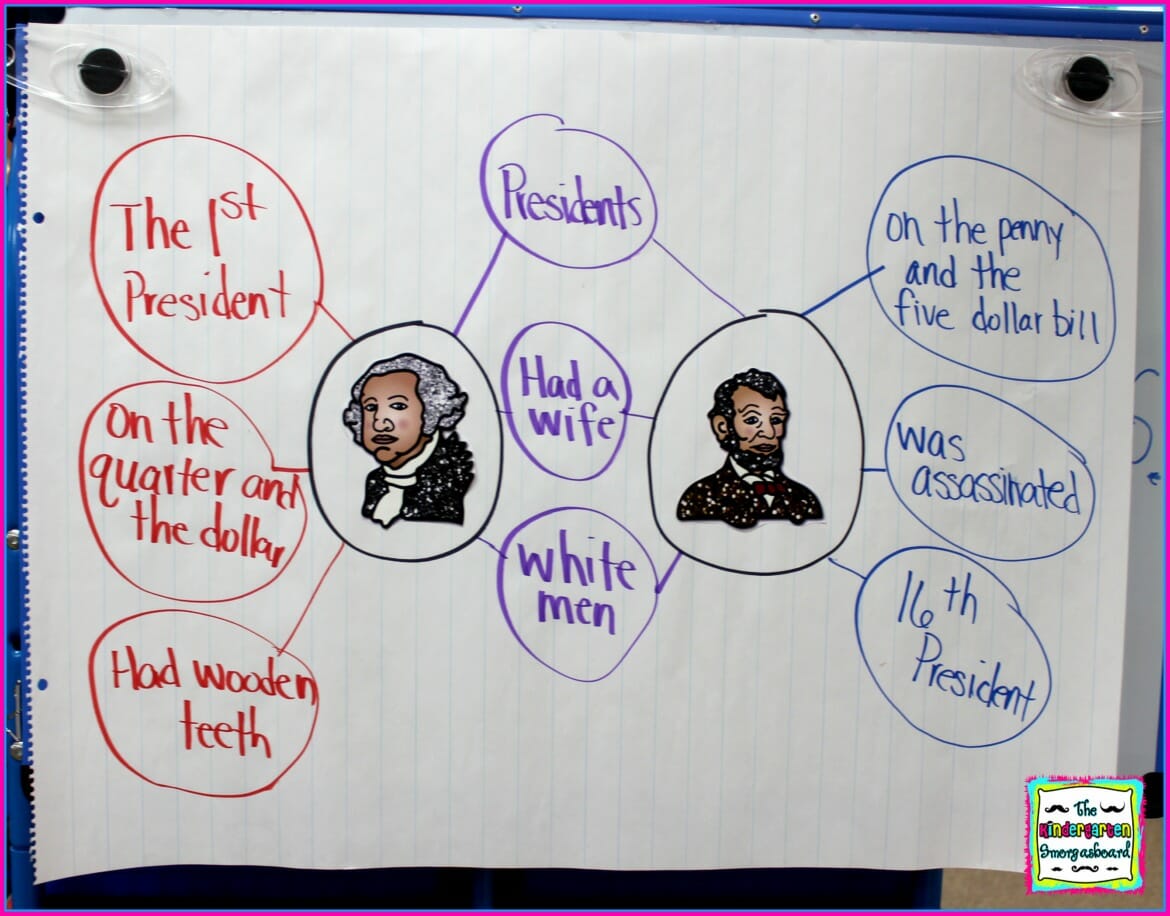 The 1st
President
on the
quarter and
the dollar
Had wooden
teeth
Presidents
Had a
wife
white
men
on the penny
and the
five dollar bill
was
assassinated
16th
President
The
Kindergarten
Smorgasboard